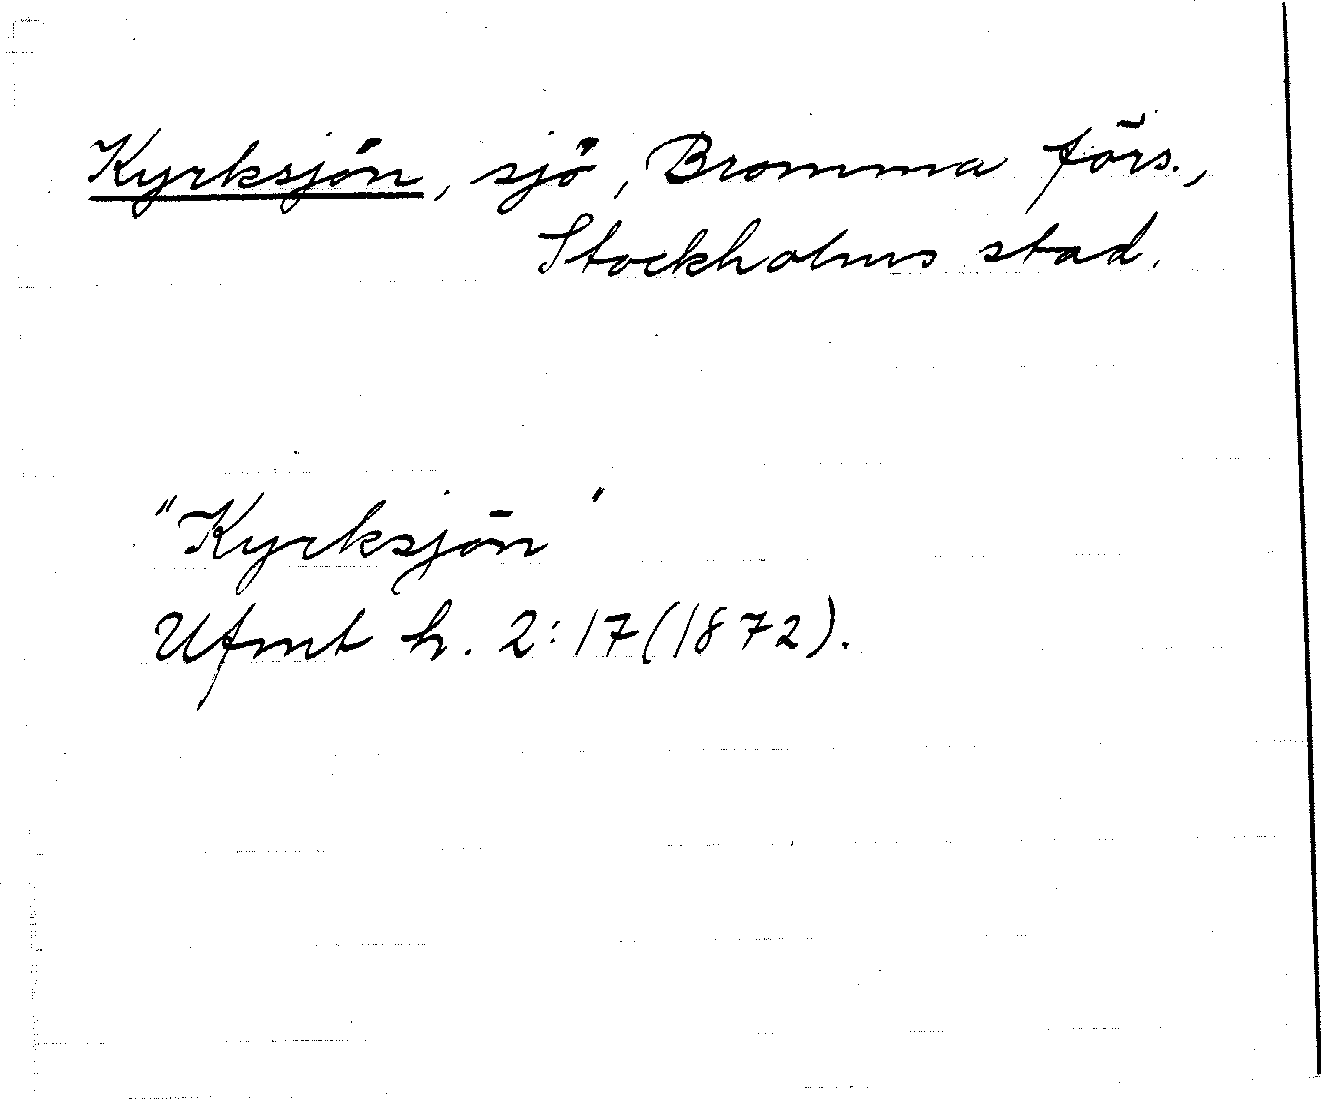 Kyrksjön, sjö, Bromma förs.,
Stockholms stad.
"Kyrksjön"
Ufmt h. 2:17(1872).